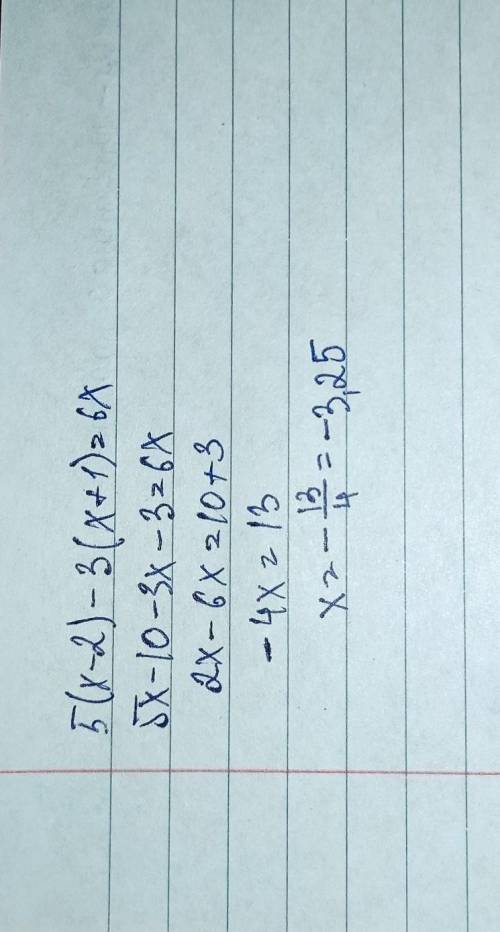 5(x-2)-3(x+1)=6x
5x-10-3x-3=6x
2x-6x=10+3
-4x=13
x=-13/4=-3,25